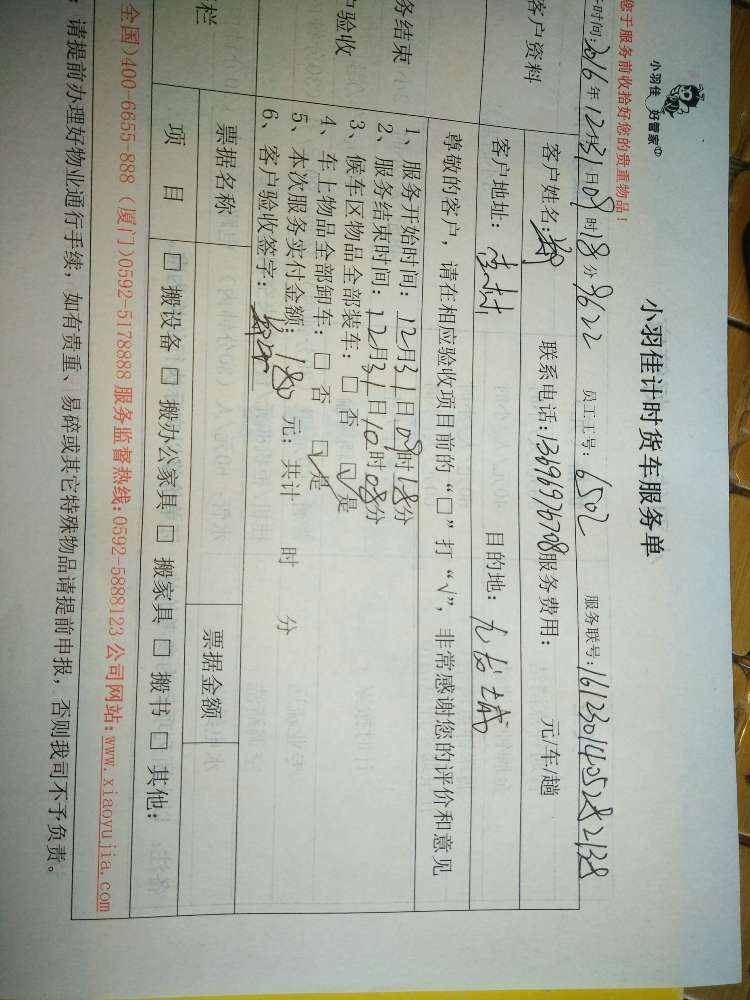 小羽佳 好管家
小羽佳计时货车服务单
时间:2016年12月31日09时18分 9622 员工工号:6502 服务联号:
您于服务前收拾好您的贵重物品!
客户资料
客户姓名:郑 联系电话:13696976708 服务费用: 元/车/趟
客户地址: 目的地:九龙城
尊敬的客户,请在相应验收项目前的“□”打“√”,非常感谢您的评价和意见
务结束
户验收
1、服务开始时间:12月31日09时18分
2、服务结束时间:12月31日10时08分
3、候车区物品全部装车:□ 否 ☑ 是
4、车上物品全部卸车:□ 否 ☑ 是
5、本次服务实付金额:180 元;共计 时 分
6、客户验收签字:
栏
票据名称 票据金额
项 目 □ 搬设备 □ 搬办公家具 □ 搬家具 □ 搬书 □ 其他:
全国)400-6655-888 (厦门)0592-5178888 服务监督热线:0592-5888123 公司网站:www.xiaoyujia.com
:请提前办理好物业通行手续,如有贵重、易碎或其它特殊物品请提前申报,否则我司不予负责。